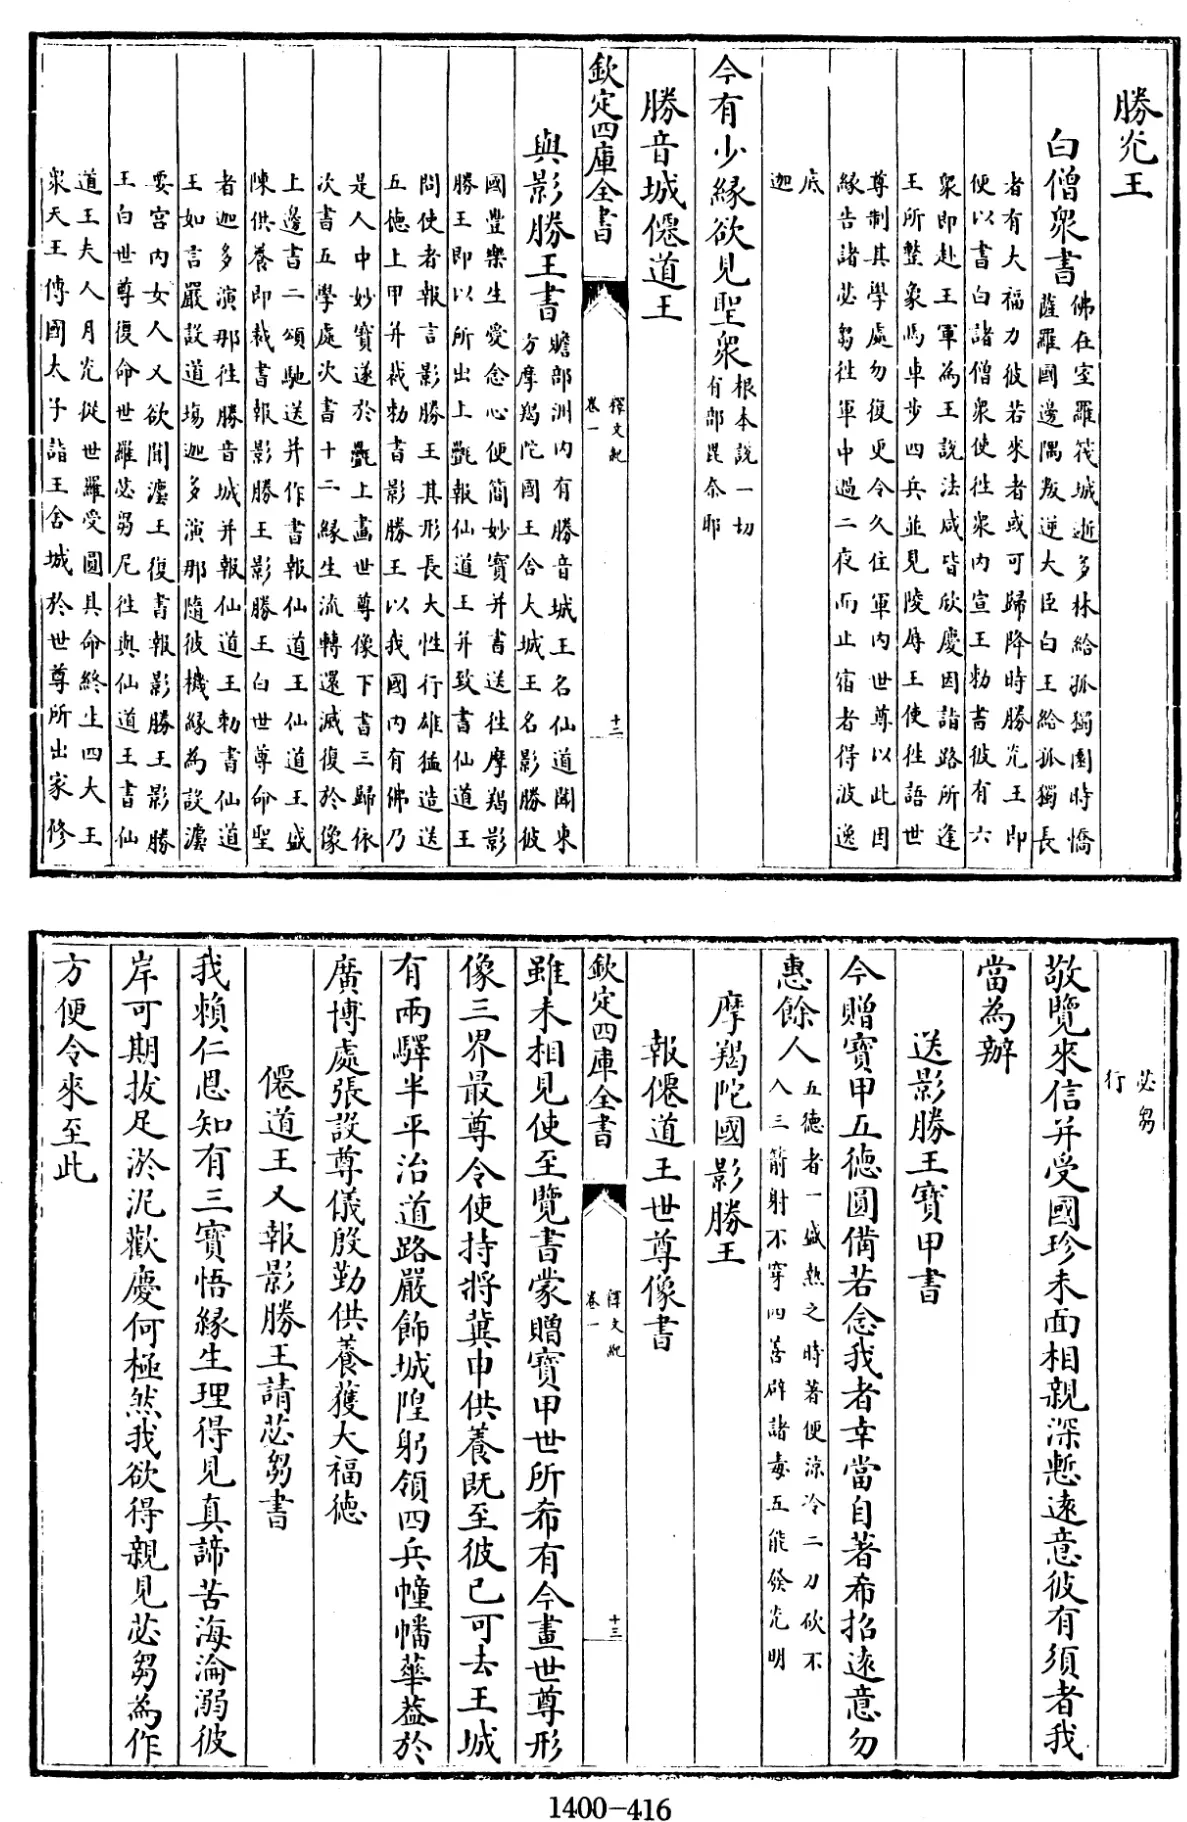 勝光王
白僧衆書
佛在室羅筏城逝多林給孤獨園時憍
薩羅國邊隅叛逆大臣白王給孤獨長
者有大福力彼若來者或可歸降時勝光王即
便以書白諸僧衆使徃衆内宣王勅書彼有六
衆即赴王軍為王説法咸皆欣慶因詣路所逢
王所整象馬車步四兵並見陵辱王使徃語世
尊制其學處勿復更令久住軍内世尊以此因
緣告諸苾芻徃軍中過二夜而止宿者得波逸
底
迦
今有少緣欲見聖衆
根本説一切
有部毘奈耶
勝音城僊道王
欽定四庫全書
釋文紀
卷一
十二
與影勝王書
贍部洲内有勝音城王名仙道聞東
方摩羯陀國王舍大城王名影勝彼
國豐樂生愛念心便簡妙寳并書送徃摩羯影
勝王即以所出上㲲報仙道王并致書仙道王
問使者報言影勝王其形長大性行雄猛造送
五徳上甲并裁勅書影勝王以我國内有佛乃
是人中妙寳遂於㲲上畫世尊像下書三歸依
次書五學處次書十二緣生流轉還滅復於像
上邊書二頌馳送并作書報仙道王仙道王盛
陳供養即裁書報影勝王影勝王白世尊命聖
者迦多演那徃勝音城并報仙道王勅書仙道
王如言嚴設道塲迦多演那隨彼機緣為説灋
要宫内女人又欲聞灋王復書報影勝王影勝
王白世尊復命世羅苾芻尼徃與仙道王書仙
道王夫人月光從世羅受圓具命終生四大王
衆天王傳國太子詣王舍城於世尊所出家修
苾芻
行
敬覽來信并受國珍未面相親深慙遠意彼有須者我
當為辦
送影勝王寳甲書
今贈寳甲五徳圓備若念我者幸當自著希招遠意勿
惠餘人
五徳者一盛熱之時著便涼冷二刀砍不
入三箭射不穿四善辟諸毒五能發光明
摩羯陀國影勝王
報僊道王世尊像書
欽定四庫全書
釋文紀
卷一
十三
雖未相見使至覽書蒙贈寳甲世所希有今畫世尊形
像三界最尊令使持將冀申供養既至彼已可去王城
有兩驛半平治道路嚴飾城隍躬領四兵幢幡華葢於
廣博處張設尊儀殷勤供養獲大福徳
僊道王又報影勝王請苾芻書
我賴仁恩知有三寳悟緣生理得見真諦苦海淪溺彼
岸可期拔足淤泥歡慶何極然我欲得親見苾芻為作
方便令來至此
1400-416